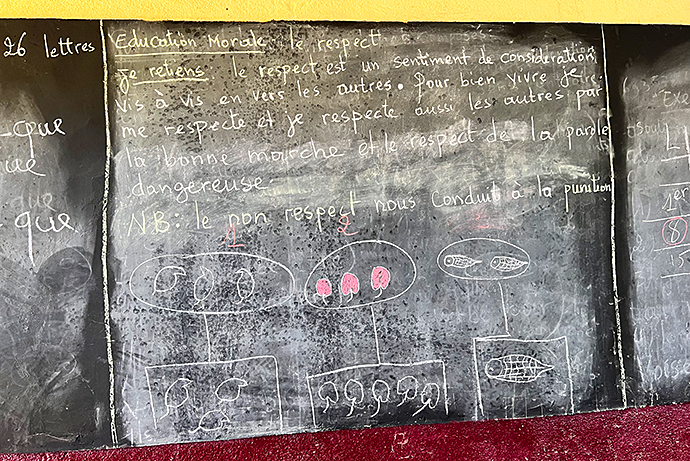 26 lettres
-que
ue
que
que
Education Morale : le respect
Je retiens : le respect est un sentiment de consideration
vis à vis en vers les autres. Pour bien vivre je
me respecte et je respecte aussi les autres par
la bonne marche et le respect de la parole
dangereuse
NB : le non respect nous conduit à la punition
1 2
Exe
1er
8
15